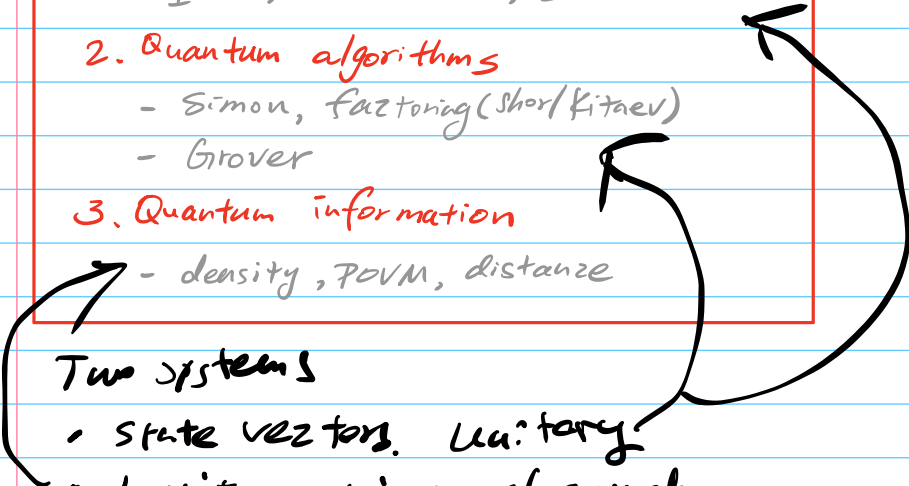 2. Quantum algorithms
- Simon, factoring (Shor/Kitaev)
- Grover
3. Quantum information
- density, POVM, distance
Two systems
• state vectors. Unitary